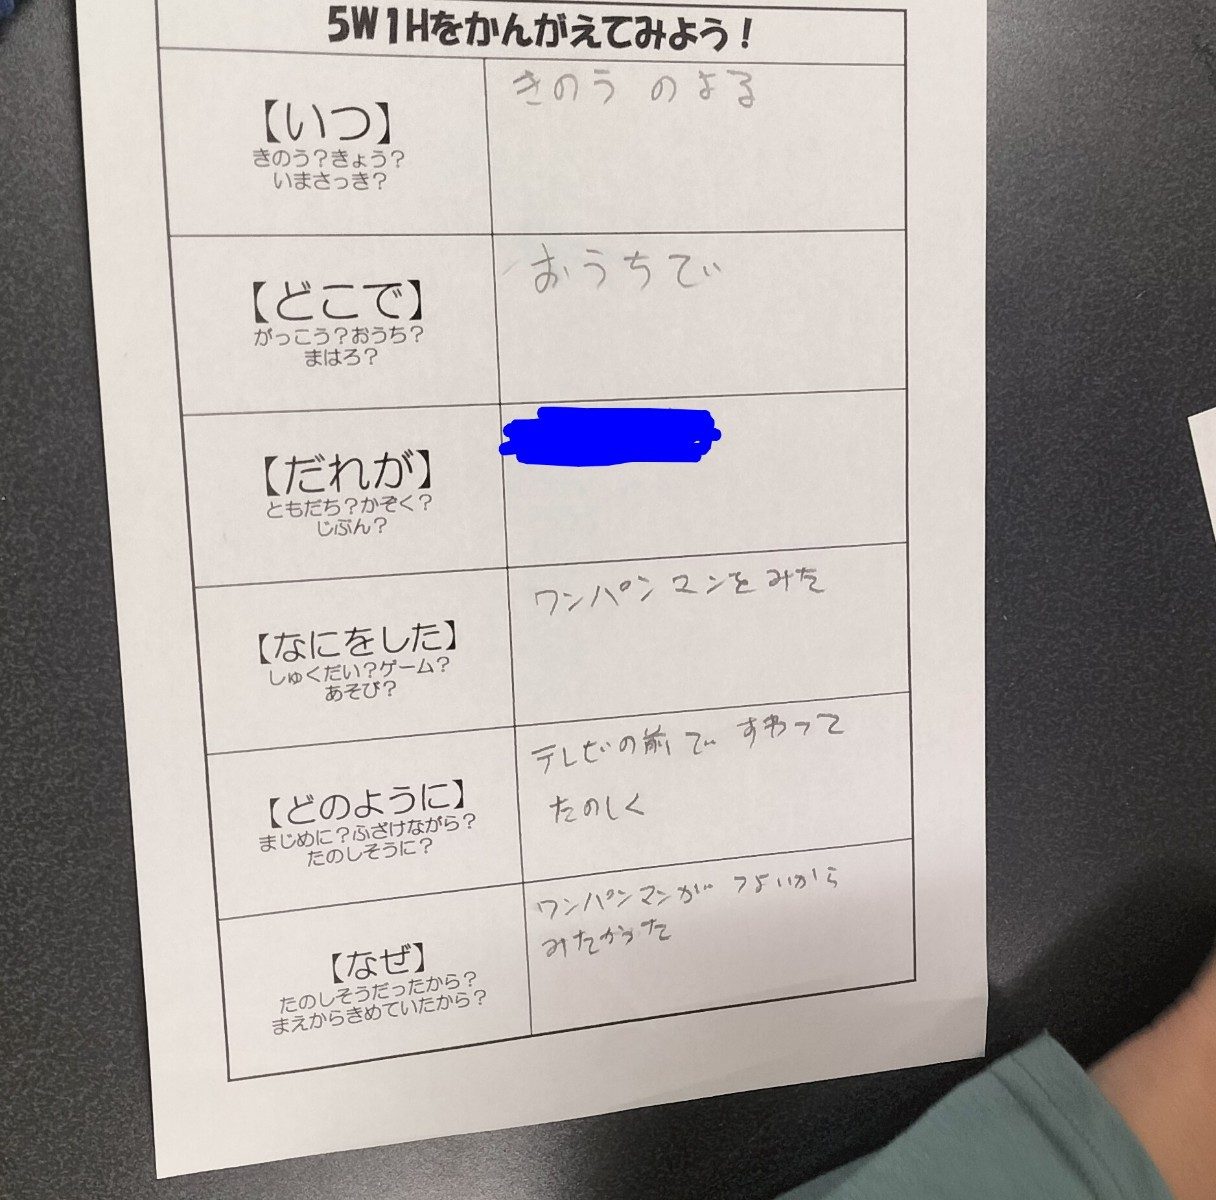 5W1Hをかんがえてみよう！
【いつ】
きのう？きょう？
いまさっき？
きのう のよる
【どこで】
がっこう？おうち？
まはろ？
おうちで
【だれが】
ともだち？かぞく？
じぶん？
【なにをした】
しゅくだい？ゲーム？
あそび？
ワンパンマンをみた
【どのように】
まじめに？ふざけながら？
たのしそうに？
テレビの前で すわって
たのしく
【なぜ】
たのしそうだったから？
まえからきめていたから？
ワンパンマンが つよいから
みたかった